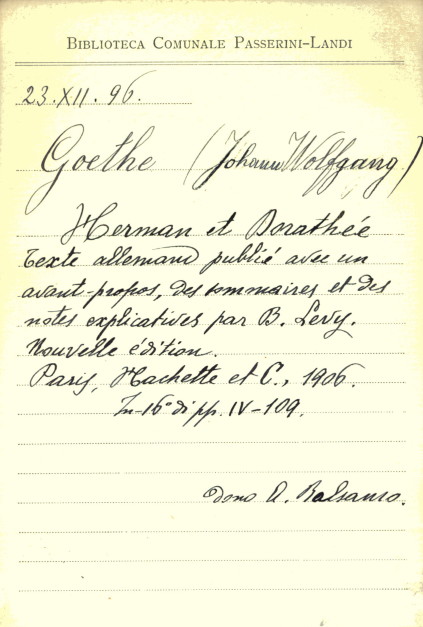 BIBLIOTECA COMUNALE PASSERINI-LANDI
23.XII.96.
Goethe (Johann Wolfgang)
Herman et Dorathée
Texte allemand publié avec un
avant-propos, des sommaires et des
notes explicatives par B. Levy.
Nouvelle édition.
Paris, Hachette et C., 1906.
In-16° di pp. IV-109.
Dono A. Balsamo.